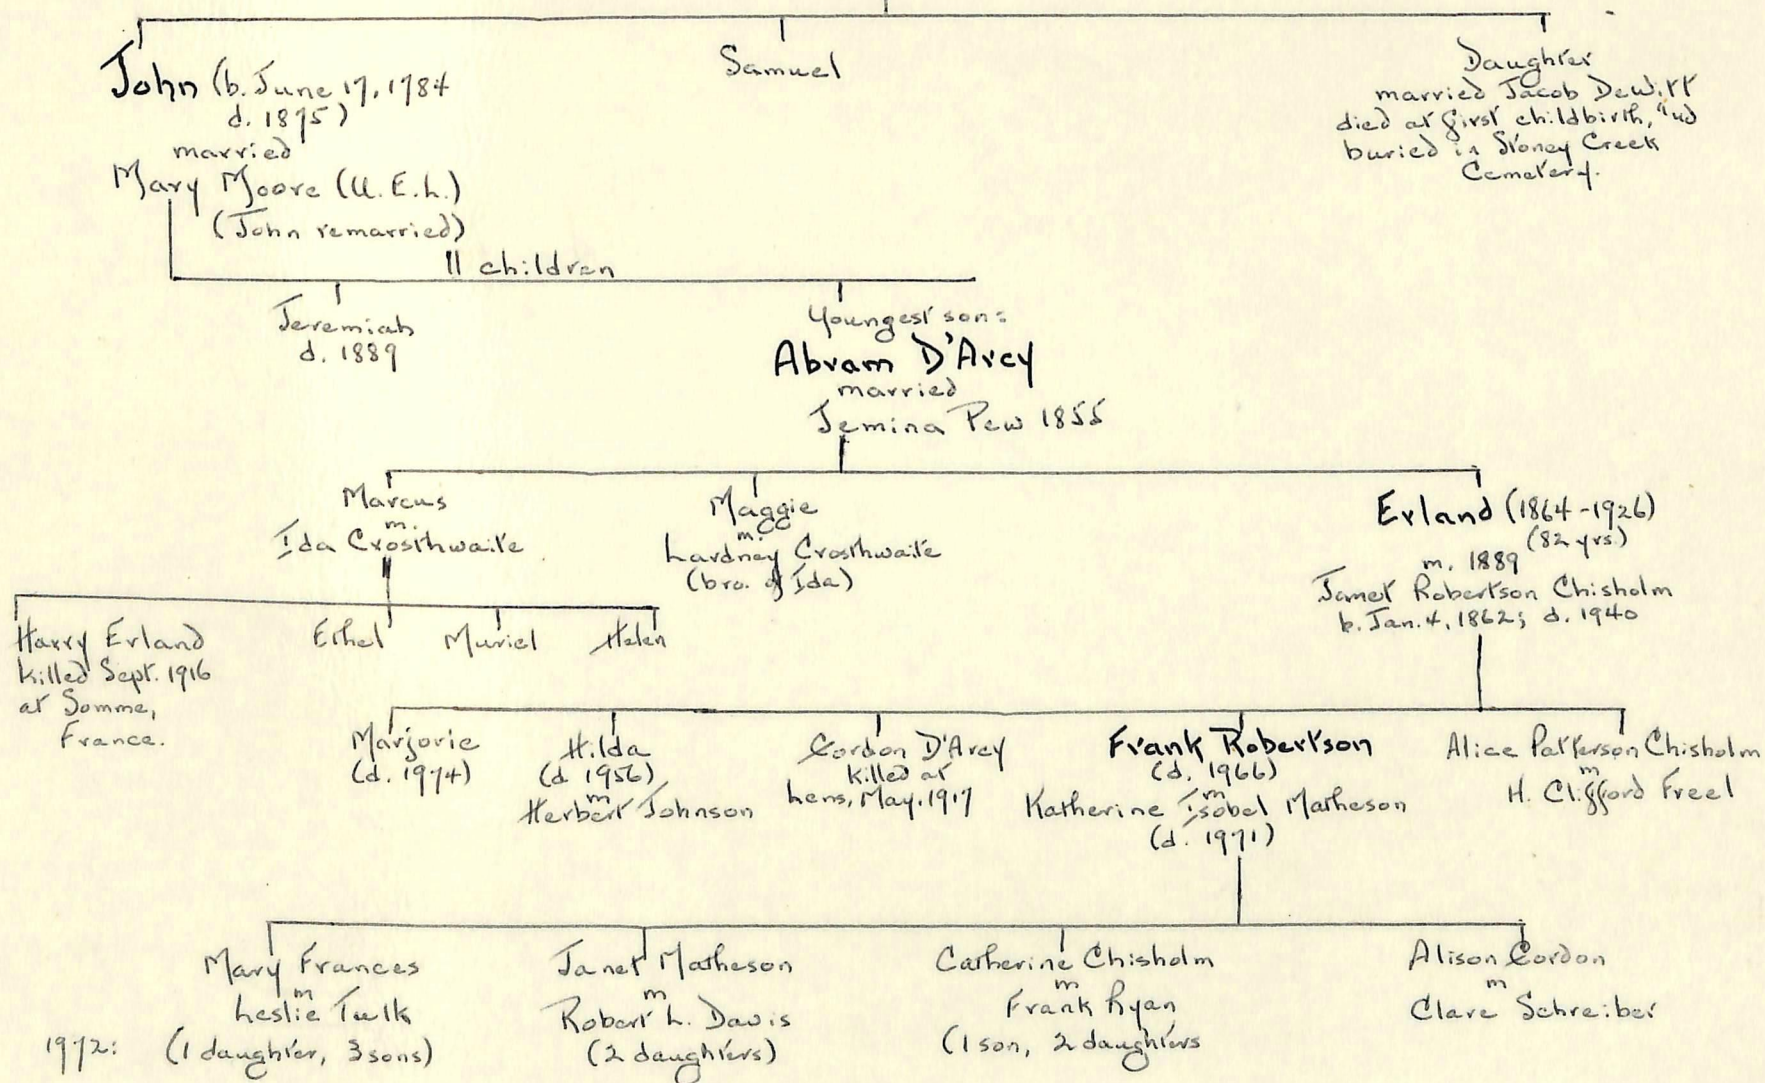 John (b. June 17, 1784
d. 1875)
married
Mary Moore (U.E.L.)
(John remarried)
Samuel
Daughter
married Jacob DeWitt
died at first childbirth,
buried in Stoney Creek
Cemetery.
11 children
Jeremiah
d. 1889
Youngest son:
Abram D'Arcy
married
Jemina Pew 1855
Marcus
m.
Ida Crosthwaite
Maggie
m.
Lardney Crosthwaite
(bro. of Ida)
Erland (1864-1926)
(82 yrs.)
m. 1889
Janet Robertson Chisholm
b. Jan. 4, 1862; d. 1940
Harry Erland
killed Sept. 1916
at Somme,
France.
Ethel
Muriel
Helen
Marjorie
(d. 1974)
Hilda
(d. 1956)
m
Herbert Johnson
Gordon D'Arcy
killed at
Lens, May, 1917
Frank Robertson
(d. 1966)
m
Katherine Isobel Matheson
(d. 1971)
Alice Patterson Chisholm
m
H. Clifford Freel
Mary Frances
m
Leslie Tulk
1972: (1 daughter, 3 sons)
Janet Matheson
m
Robert L. Davis
(2 daughters)
Catherine Chisholm
m
Frank Ryan
(1 son, 2 daughters
Alison Gordon
m
Clare Schreiber